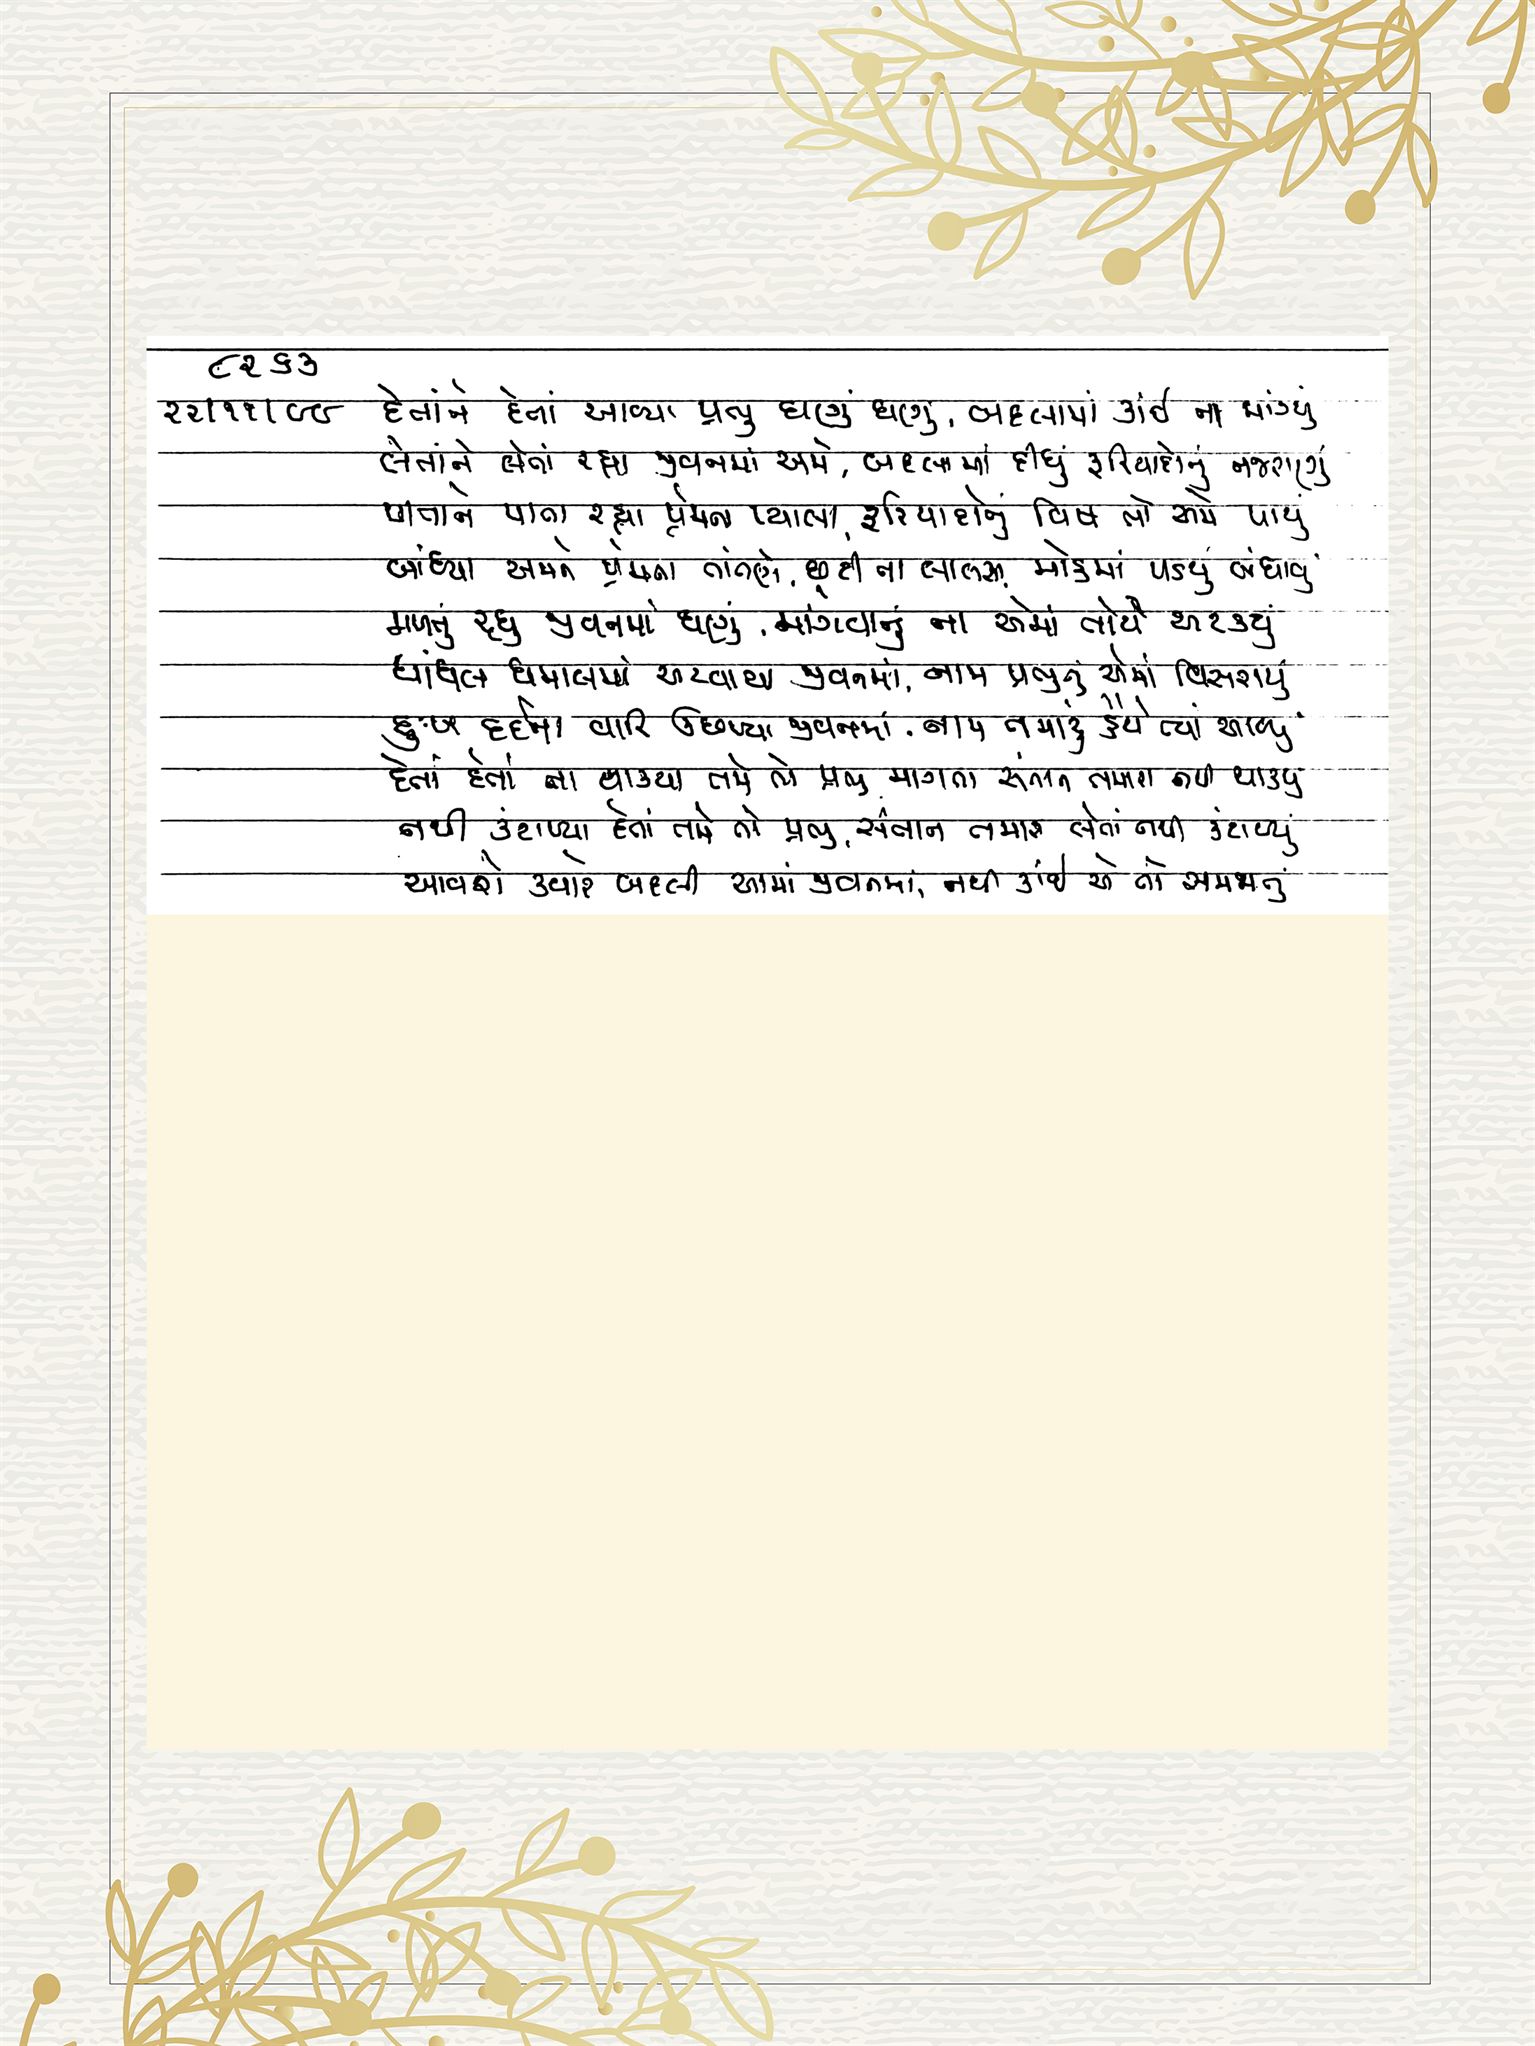 ૮૨૬૩
૨૨/૧૧/૯૯ દેતાંને દેતાં આવ્યા પ્રભુ ઘણું ઘણું, બદલામાં કાંઈ ના માંગ્યું
લેતાંને લેતાં રહ્યા જીવનમાં અમે, બદલામાં દીધું ફરિયાદોનું નજરાણું
પીતાને પાતા રહ્યા પ્રેમના પ્યાલા, ફરિયાદોનું વિષ તો અમે પાયું
બાંધ્યા અમને પ્રેમના તાંતણે, છૂટી ના લાલસા, મોહમાં પડયું બંધાવું
મળતું રહ્યું જીવનમાં ઘણું, માંગવાનું ના એમાં તોયે અટકયું
ધાંધલ ધમાલમાં અટવાયા જીવનમાં, નામ પ્રભુનું એમાં વિસરાયું
દુઃખ દર્દના વારિ ઉછળ્યા જીવનમાં, નામ તમારું હૈયે ત્યાં આવ્યું
દેતાં દેતાં ના થાકયા તમે તો પ્રભુ, માગતા સંતાન તમારા નથી થાકયું
નથી કંટાળ્યા દેતાં તમે તો પ્રભુ, સંતાન તમારા લેતાં નથી કંટાળ્યું
આવશે કયારે બદલી આમાં જીવનમાં, નથી કાંઈ એ તો સમજાતું